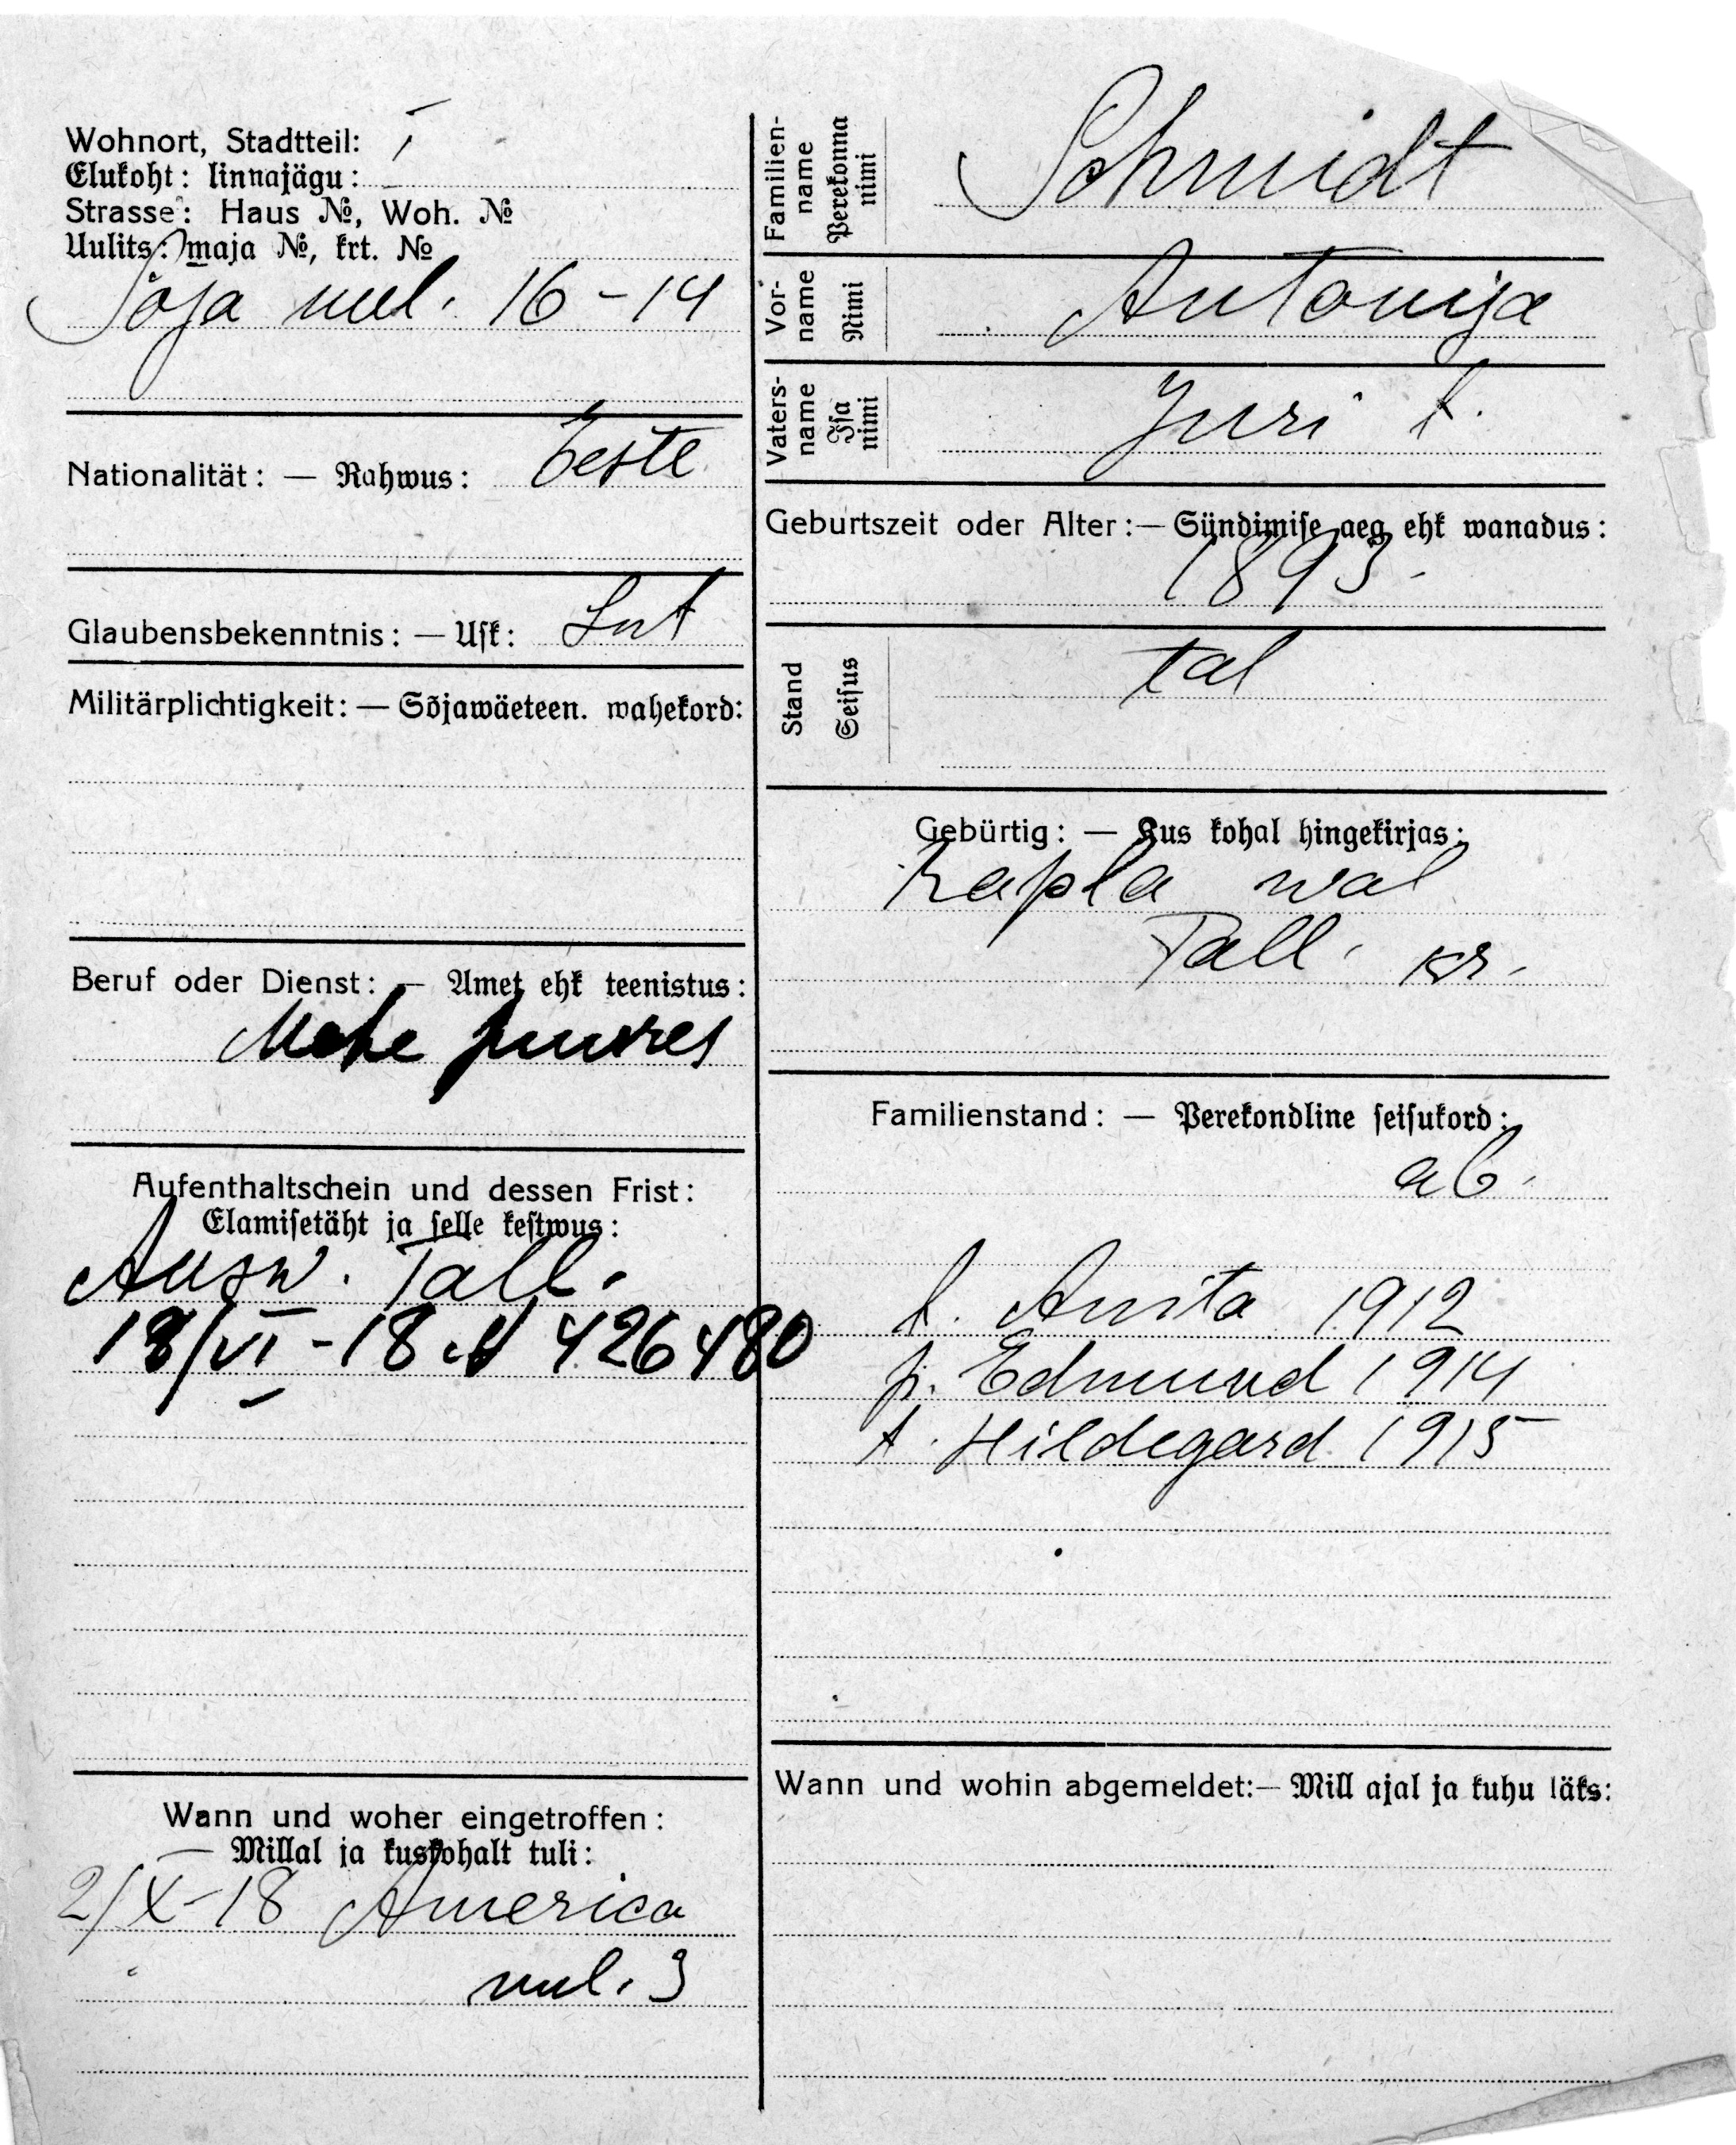 Wohnort, Stadtteil: I
Elukoht: linnajägu:
Strasse: Haus №, Woh. №
Uulits: maja №, krt. №
Soja uul. 16-14
Nationalität: — Rahwus: Eeste
Glaubensbekenntnis: — Usk: Lut
Militärplichtigkeit: — Sõjawäeteen. wahekord:
Beruf oder Dienst: — Amet ehk teenistus:
Mehe juures
Aufenthaltschein und dessen Frist:
Elamisetäht ja selle kestwus:
Ausw. Tall.
18/VI-18 № 426480
Wann und woher eingetroffen:
— Millal ja kuskohalt tuli:
2/X-18 America
uul. 3
Familien-name
Perekonna nimi
Schmidt
Vor-name
Nimi
Antonija
Vaters-name
Isa nimi
Juri t.
Geburtszeit oder Alter: — Sündimise aeg ehk wanadus:
1893.
Stand
Seisus
tal
Gebürtig: — Kus kohal hingekirjas:
Rapla wal
Tall. kr.
Familienstand: — Perekondline seisukord:
ab.
t. Anita 1912
p. Edmund 1914
t. Hildegard 1915
Wann und wohin abgemeldet: — Mill ajal ja kuhu läks: